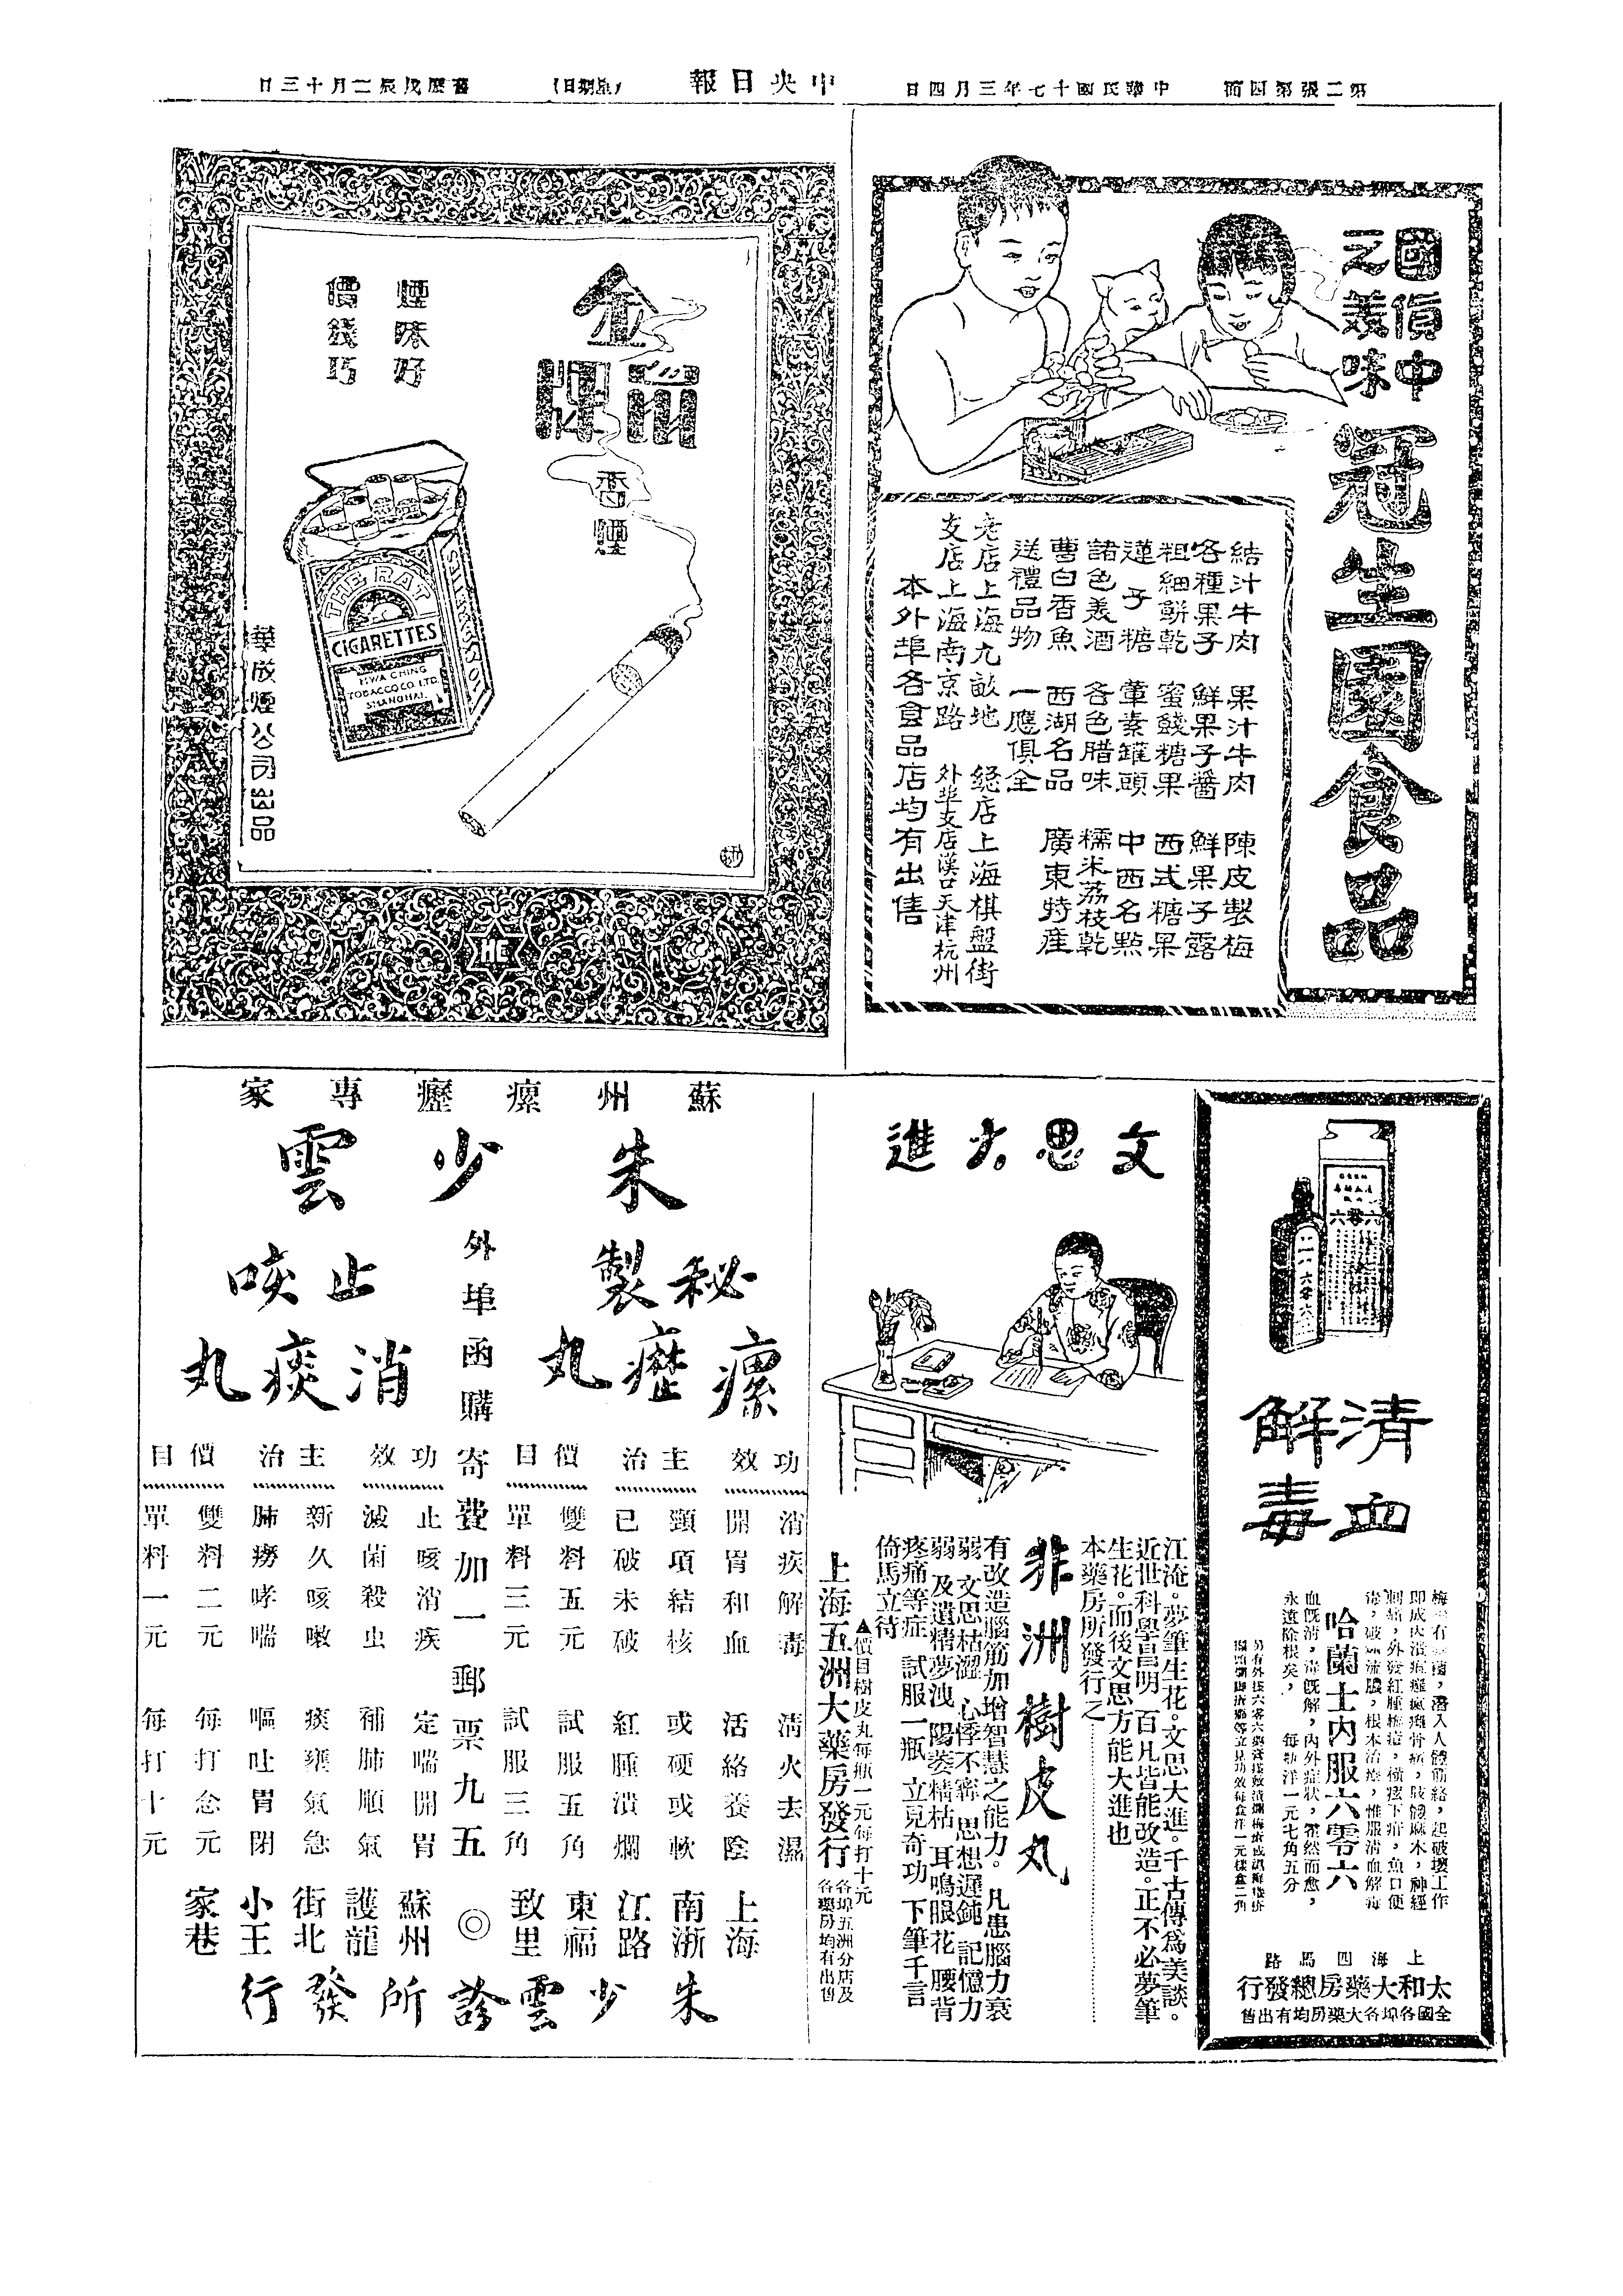 第二張第四面
中華民國十七年三月四日
中央日報
(星期日)
舊曆戊辰二月十三日
國貨中
之美味
冠生園食品
結汁牛肉 果汁牛肉 陳皮製梅
各種果子 鮮果子醬 鮮果子露
粗細餅乾 蜜餞糖果 西式糖果
蓮子糖 葷素罐頭 中西名點
諸色美酒 各色腊味 糯米荔枝乾
曹白香魚 西湖名品 廣東特產
送禮品物 一應俱全
老店上海九畝地 總店上海棋盤街
支店上海南京路 外埠支店漢口天津杭州
本外埠各食品店均有出售
金
鼠牌
香煙
煙味好
價錢巧
THE RAT
CIGARETTES
HWA CHING
TOBACCO CO. LTD.
SHANGHAI.
華成煙公司出品
清血
解毒
六零六
即成內潰痘癧瘋癱骨痛，肢體麻木，神經
毒，破爛流膿，根本治療，惟服清血解毒
哈蘭士內服六零六
血既清，毒既解，內外症狀，霍然而愈，
永遠除根矣， 每瓶洋一元七角五分
上海四馬路
太和大藥房總發行
全國各埠各大藥房均有出售
文思大進
江淹。夢筆生花。文思大進。千古傳為美談。
近世科學昌明 百凡皆能改造。正不必夢筆
生花。而後文思方能大進也
本藥房所發行之
非洲樹皮丸
有改造腦筋加增智慧之能力。凡患腦力衰
弱 文思枯澀 心悸不寧 思想遲鈍 記憶力
弱 及遺精夢洩 陽萎精枯 耳鳴眼花 腰背
疼痛等症 試服一瓶 立見奇功 下筆千言
倚馬立待
▲價目樹皮丸每瓶一元每打十元
上海五洲大藥房發行
各埠五洲分店及
各藥房均有出售
蘇州瘰癧專家
朱少雲
秘製
瘰癧丸
功效
消痰解毒 清火去濕
開胃和血 活絡養陰
主治
頸項結核 或硬或軟
已破未破 紅腫潰爛
價目
雙料五元 試服五角
單料三元 試服三角
外埠函購寄費加一郵票九五
◎
止咳
消痰丸
功效
止咳消痰 定喘開胃
滅菌殺虫 補肺順氣
主治
新久咳嗽 痰壅氣急
肺癆哮喘 嘔吐胃閉
價目
雙料二元 每打念元
單料一元 每打十元
上海
南浙
江路
東福
致里
蘇州
護龍
街北
小王
家巷
朱少雲診所發行